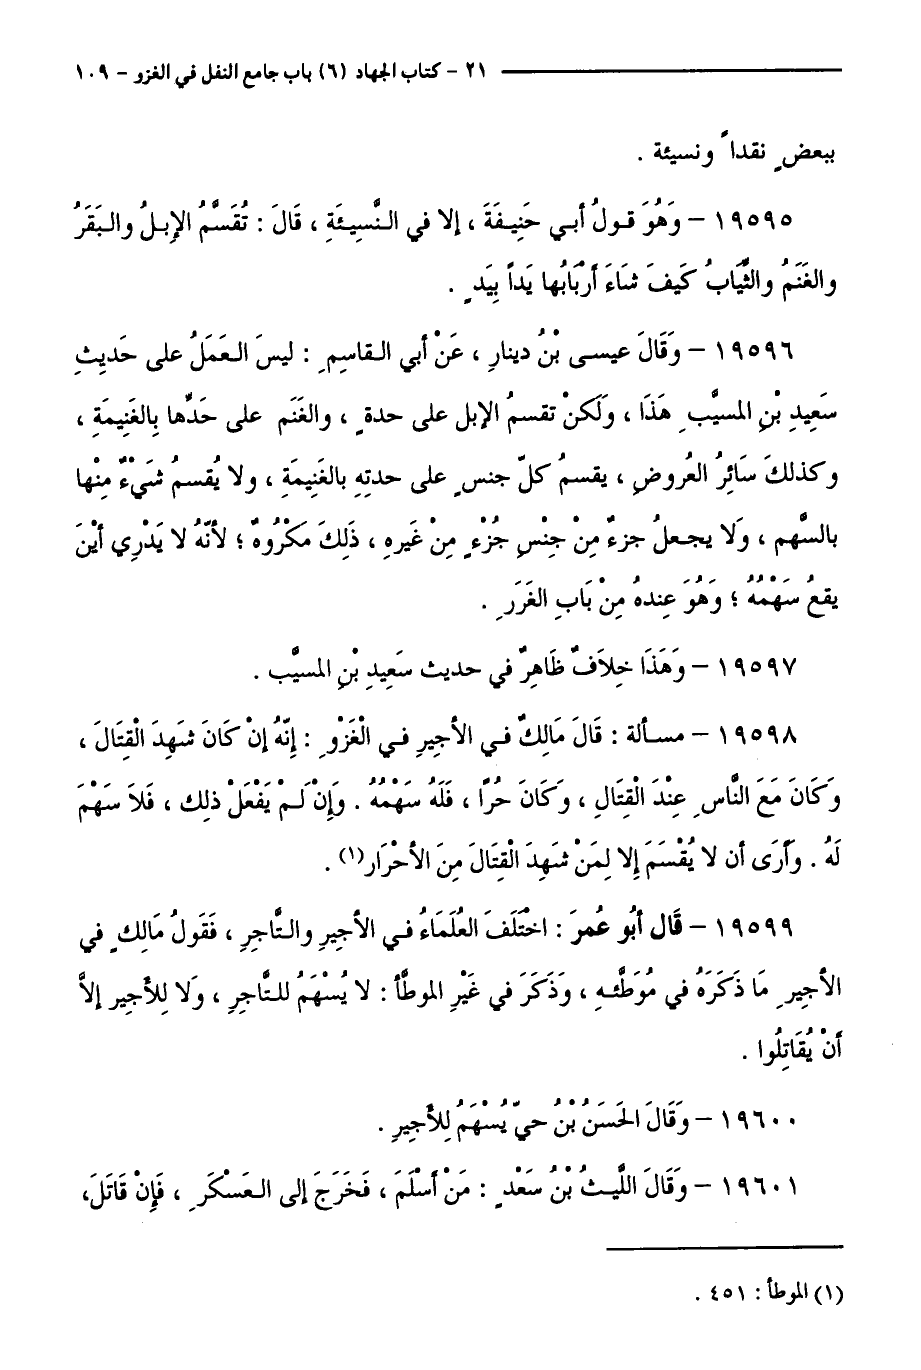 ٢١ - كتاب الجهاد (٦) باب جامع النفل في الغزو - ١٠٩
ببعضٍ نقداً ونسيئة .
١٩٥٩٥ - وَهُوَ قولُ أبي حَنِيفَةَ ، إلا في النَّسِيئَةِ ، قَالَ : تُقَسَّمُ الإبلُ والبَقَرُ
والغَنَمُ والثِّيَابُ كَيفَ شَاءَ أَرْبَابُها يَداً بِيَدٍ .
١٩٥٩٦ - وَقَالَ عيسى بْنُ دينارِ ، عَنْ أبي القاسِمِ : ليسَ العَمَلُ على حَديثِ
سَعِيدِ بْنِ المسيَّبِ هَذَا ، وَلَكِنْ تقسمُ الإبل على حدةٍ ، والغَنَم على حَدِّها بِالغَنِيمَةِ ،
وكذلكَ سَائِرُ العُروضِ ، يقسمُ كلّ جنسٍ على حدتِهِ بالغَنِيمَةِ ، ولا يُقسمُ شَيْءٌ مِنْها
بالسَّهم ، وَلا يجعلُ جزءٌ مِنْ جِنْسٍ جُزْءٍ مِنْ غَيرِهِ ، ذَلِكَ مَكْرُوهٌ ؛ لأنَّهُ لا يَدْرِي أيْنَ
يقعُ سَهْمُهُ ؛ وَهُوَ عِندهُ مِنْ بَابِ الغَرَرِ .
١٩٥٩٧ - وَهَذَا خِلاَفٌ ظَاهِرٌ في حديث سَعِيدِ بْنِ المسيَّب .
١٩٥٩٨ - مسألة : قَالَ مَالِكٌ في الأجيرِ في الْغَزْوِ : إِنَّهُ إنْ كَانَ شَهِدَ الْقِتَالَ ،
وَكَانَ مَعَ النَّاسِ عِنْدَ الْقِتَالِ ، وَكَانَ حُرّاً ، فَلَهُ سَهْمُهُ . وَإِنْ لَمْ يَفْعَلْ ذلك ، فَلاَ سَهْمَ
لَهُ . وَأَرَى أن لا يُقْسَمَ إلا لِمَنْ شَهِدَ الْقِتَالَ مِنَ الأحْرَارِ(١) .
١٩٥٩٩ - قَال أبُو عُمرَ : اخْتَلَفَ العُلَمَاءُ في الأجيرِ والتَّاجرِ ، فَقَولُ مَالِكٍ في
الأجيرِ مَا ذَكَرَهُ في مُوَطَّئهِ ، وَذَكَرَ في غَيْرِ الموطَّأ : لا يُسْهَمُ للتَّاجرِ ، وَلا لِلأجير إلاَّ
أنْ يُقَاتِلُوا .
١٩٦٠٠ - وَقَالَ الحَسَنُ بْنُ حيّ يُسْهَمُ لِلأَجيرِ .
١٩٦٠١ - وَقَالَ اللَّيثُ بْنُ سَعْدٍ : مَنْ أسْلَمَ ، فَخَرَجَ إلى العَسْكَرِ ، فَإِنْ قَاتَلَ،
(١) الموطأ : ٤٥١ .